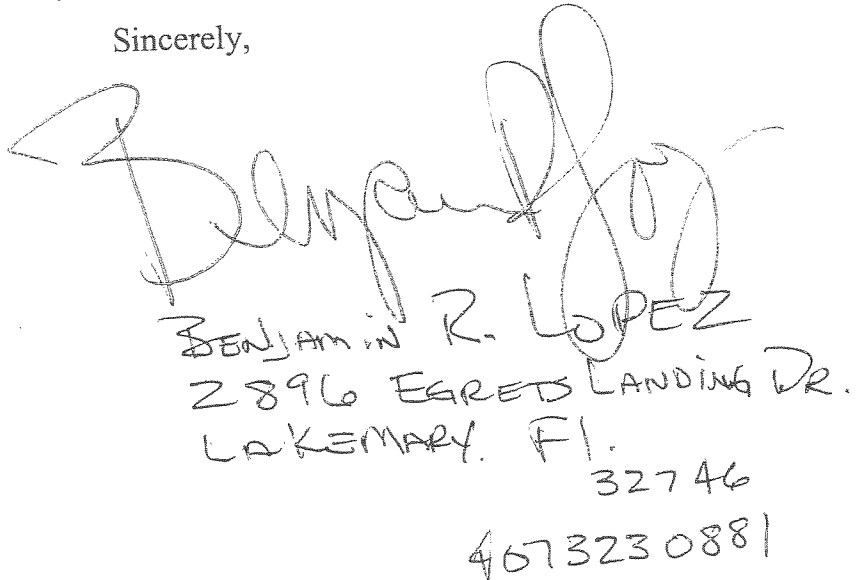 Sincerely,
Benjamin R. Lopez
BENJAMIN R. LOPEZ
2896 EGRETS LANDING DR.
LAKEMARY. Fl.
32746
4073230881